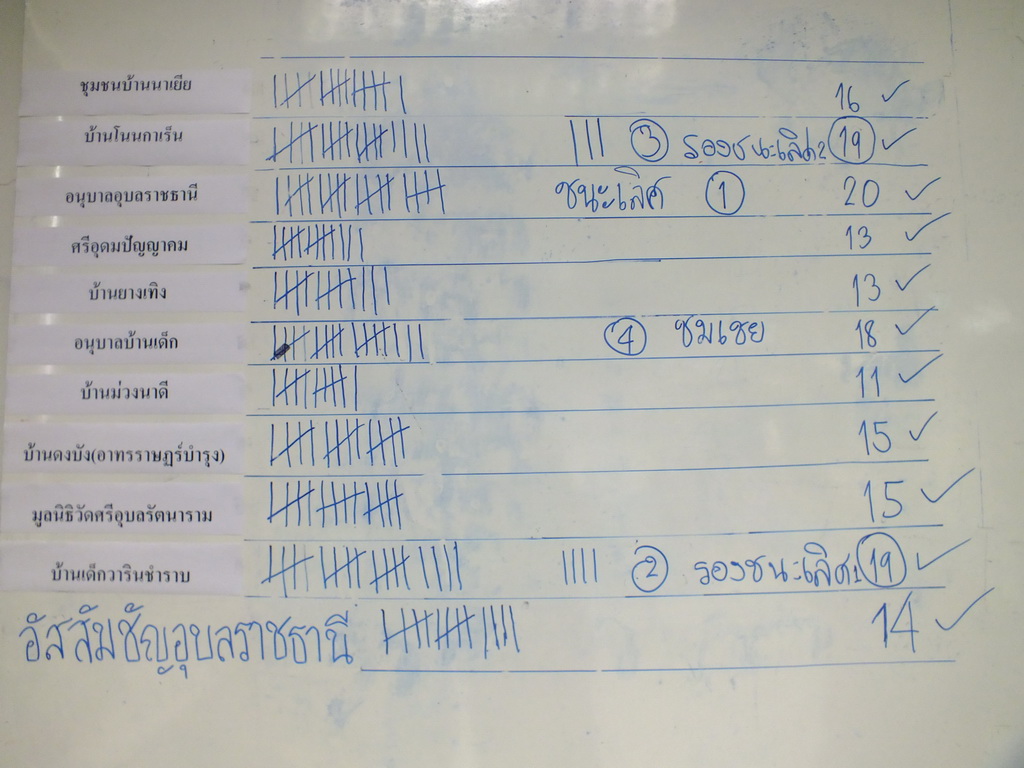 ชุมชนบ้านนาเยีย 16 ✓
บ้านโนนกาเร็น ③ รองชนะเลิศ2 19 ✓
อนุบาลอุบลราชธานี ชนะเลิศ ① 20 ✓
ศรีอุดมปัญญาคม 13 ✓
บ้านยางเทิง 13 ✓
อนุบาลบ้านเด็ก ④ ชมเชย 18 ✓
บ้านม่วงนาดี 11 ✓
บ้านดงบัง(อาทรราษฎร์บำรุง) 15 ✓
มูลนิธิวัดศรีอุบลรัตนาราม 15 ✓
บ้านเด็กวารินชำราบ ② รองชนะเลิศ1 19 ✓
อัสสัมชัญอุบลราชธานี 14 ✓